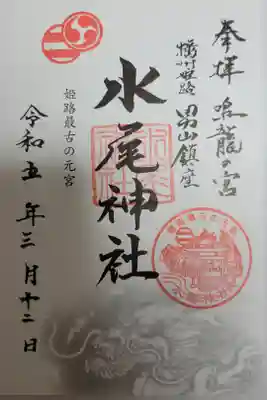 奉拝 鳴龍の宮
播州姫路 男山鎮座
水尾神社
姫路最古の元宮
令和五年三月十二日